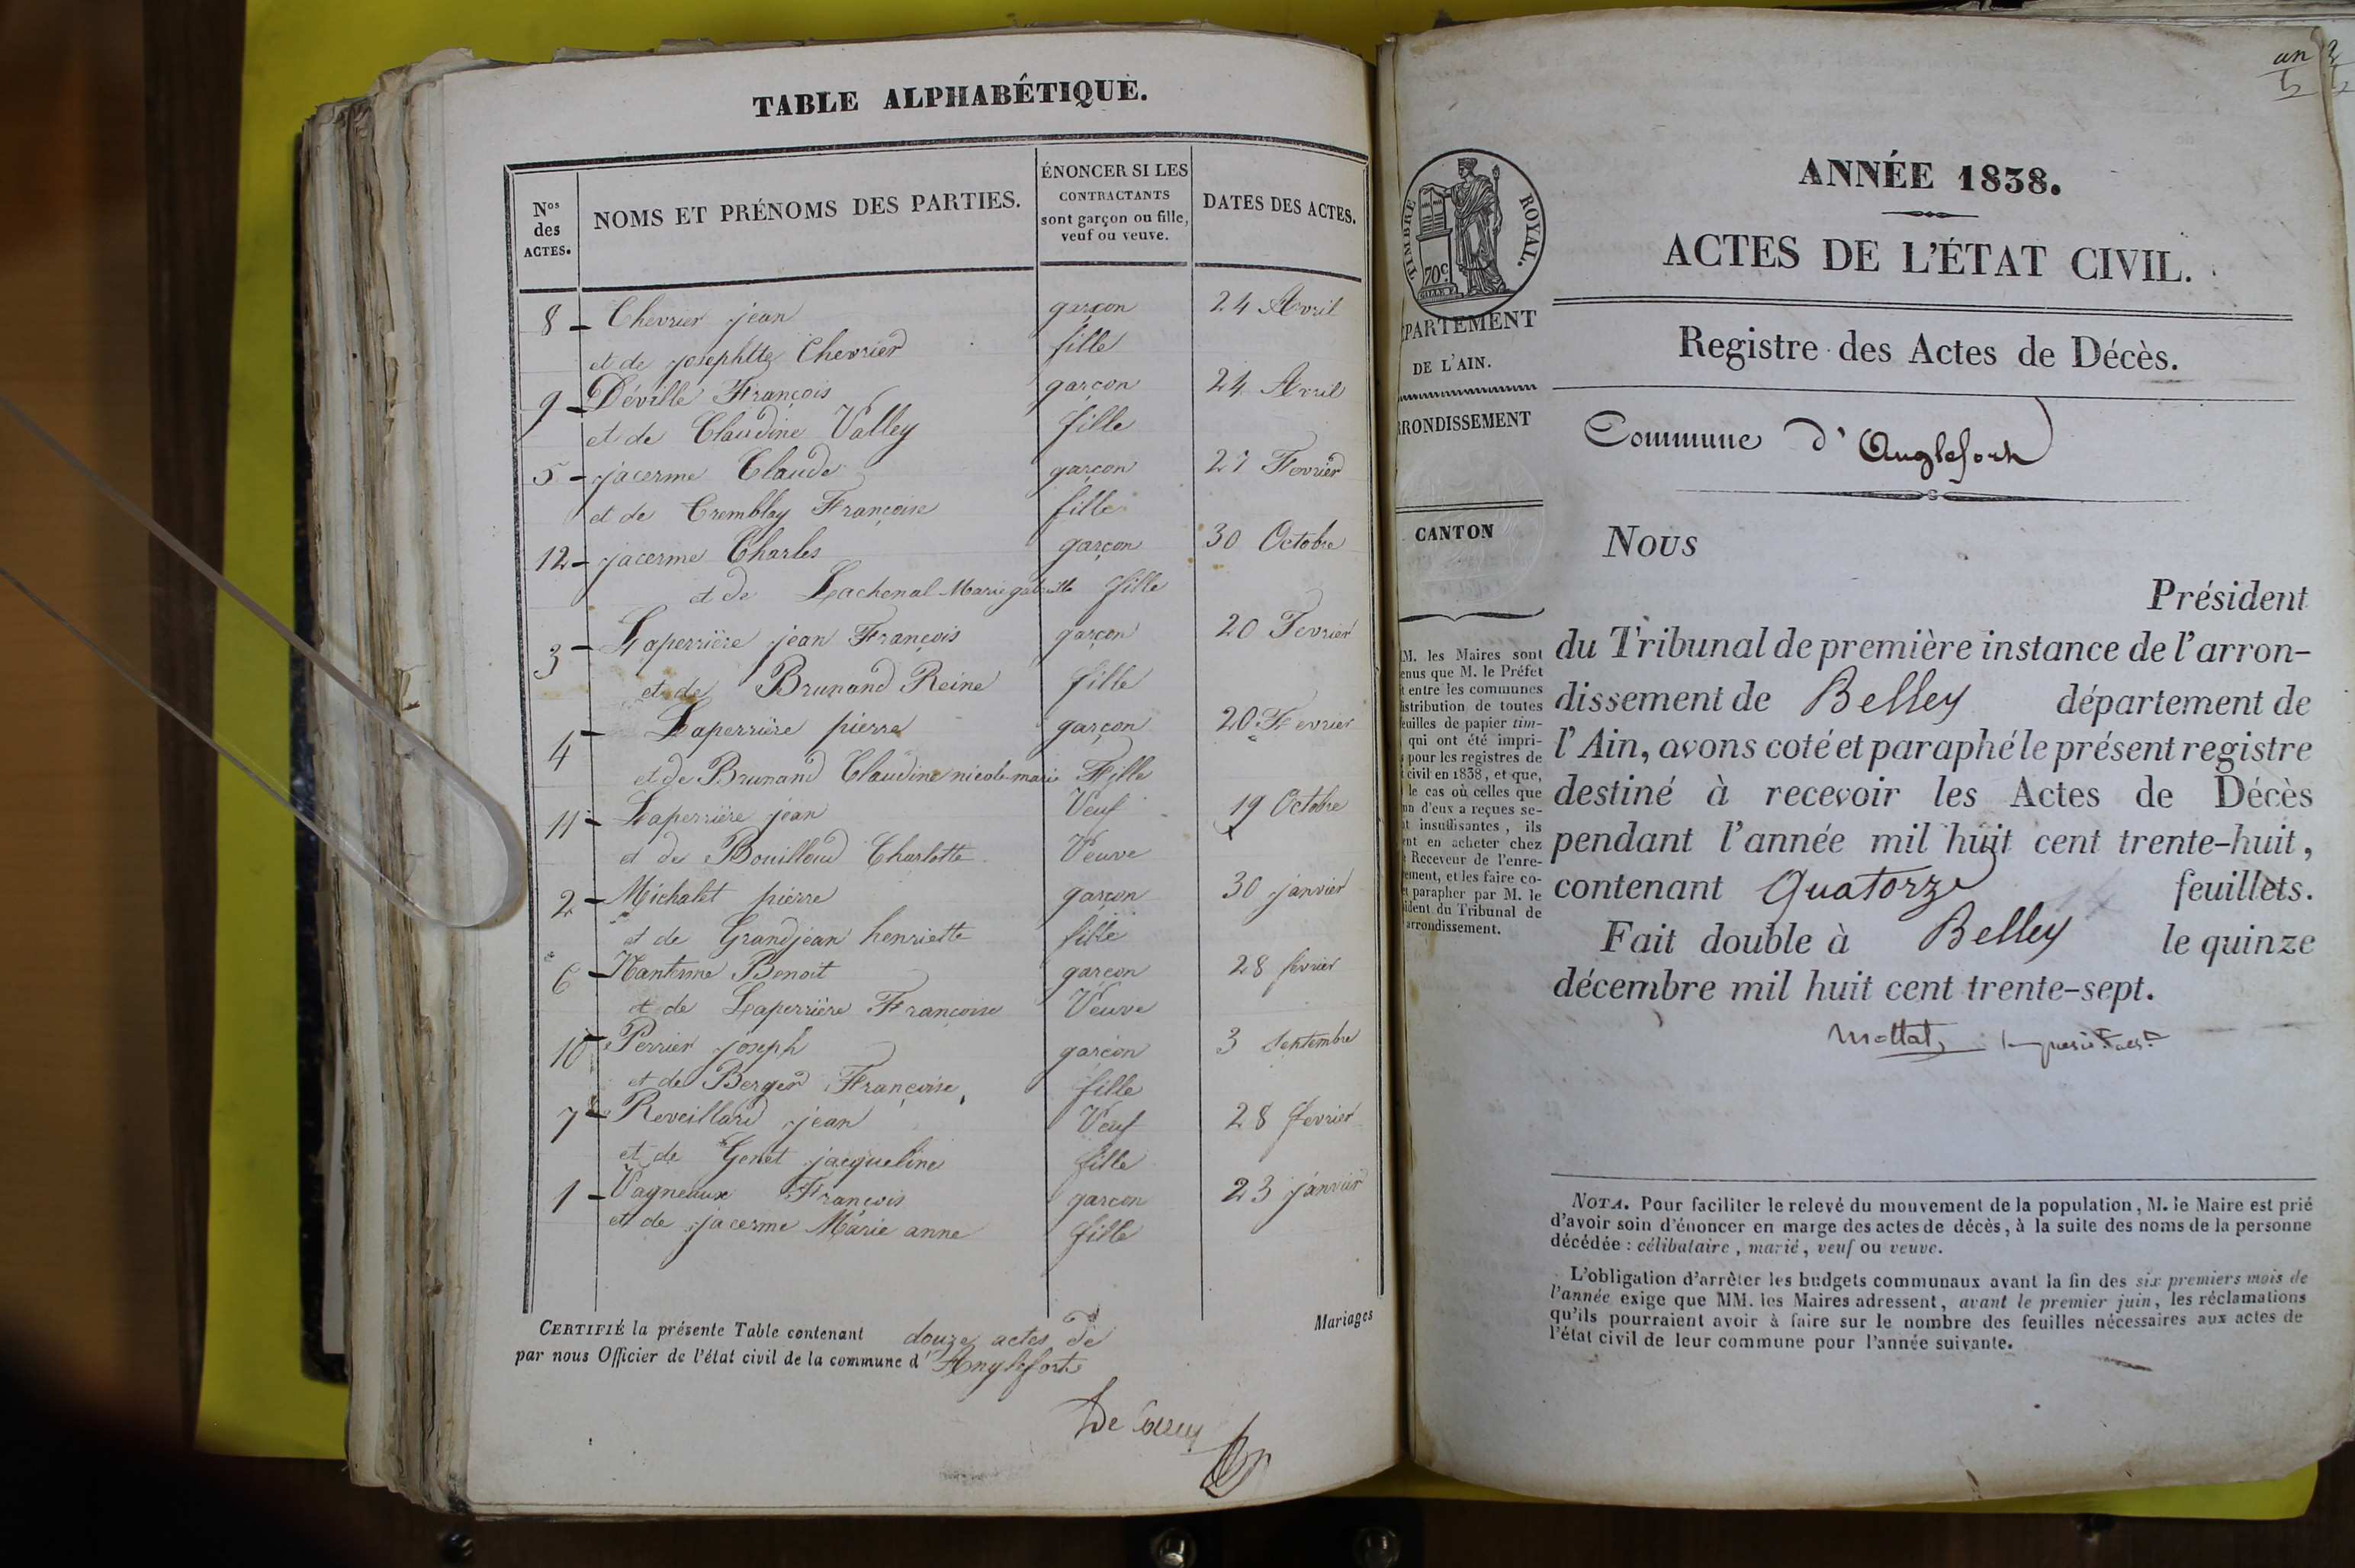 TABLE ALPHABÉTIQUE.
Nos des ACTES.
NOMS ET PRÉNOMS DES PARTIES.
ÉNONCER SI LES CONTRACTANTS sont garçon ou fille, veuf ou veuve.
DATES DES ACTES.
8 - Chevrier jean garçon 24 Avril
et de josephtte Chevrier fille
9 - Déville François garçon 24 Avril
et de Claudine Valley fille
5 - jacerme Claude garçon 27 Fevrier
et de Tremblay Françoise fille
12 - jacerme Charles garçon 30 Octobre
et de Lachenal Marie fille
3 - Laperrière jean François garçon 20 Fevrier
et de Brunand Reine fille
4 - Laperrière pierre garçon 20 Fevrier
et de Brunand Claudine nicole marie Fille
11 - Laperrière jean Veuf 19 Octobre
et de Bouilloud Charlotte Veuve
2 - Michalet pierre garçon 30 janvier
et de Grandjean henriette fille
6 - Nanterme Benoit garçon 28 fevrier
et de Laperrière Francoise Veuve
10 - Perrier joseph garçon 3 Septembre
et de Berger Françoise, fille
7 - Reveillard jean Veuf 28 fevrier
et de Genet jacqueline fille
1 - Vagneaux François garcon 23 janvier
et de jacerme Marie anne fille
CERTIFIÉ la présente Table contenant douze actes de Mariages
par nous Officier de l'état civil de la commune d' Anglefort
TIMBRE ROYAL.
70c.
PARTEMENT
DE L'AIN.
RONDISSEMENT
CANTON
M. les Maires sont
enus que M. le Préfet
t entre les communes
istribution de toutes
euilles de papier tim-
qui ont été impri-
pour les registres de
civil en 1838, et que,
le cas où celles que
n d'eux a reçues se-
t insuffisantes, ils
nt en acheter chez
Receveur de l'enre-
ement, et les faire co-
parapher par M. le
sident du Tribunal de
arrondissement.
ANNÉE 1838.
ACTES DE L'ÉTAT CIVIL.
Registre des Actes de Décès.
Commune d' Anglefort
NOUS
Président
du Tribunal de première instance de l'arron-
dissement de Belley département de
l'Ain, avons coté et paraphé le présent registre
destiné à recevoir les Actes de Décès
pendant l'année mil huit cent trente-huit,
contenant Quatorze 14 feuillets.
Fait double à Belley le quinze
décembre mil huit cent trente-sept.
NOTA. Pour faciliter le relevé du mouvement de la population, M. le Maire est prié
d'avoir soin d'énoncer en marge des actes de décès, à la suite des noms de la personne
décédée : célibataire, marié, veuf ou veuve.
L'obligation d'arrêter les budgets communaux avant la fin des six premiers mois de
l'année exige que MM. les Maires adressent, avant le premier juin, les réclamations
qu'ils pourraient avoir à faire sur le nombre des feuilles nécessaires aux actes de
l'état civil de leur commune pour l'année suivante.